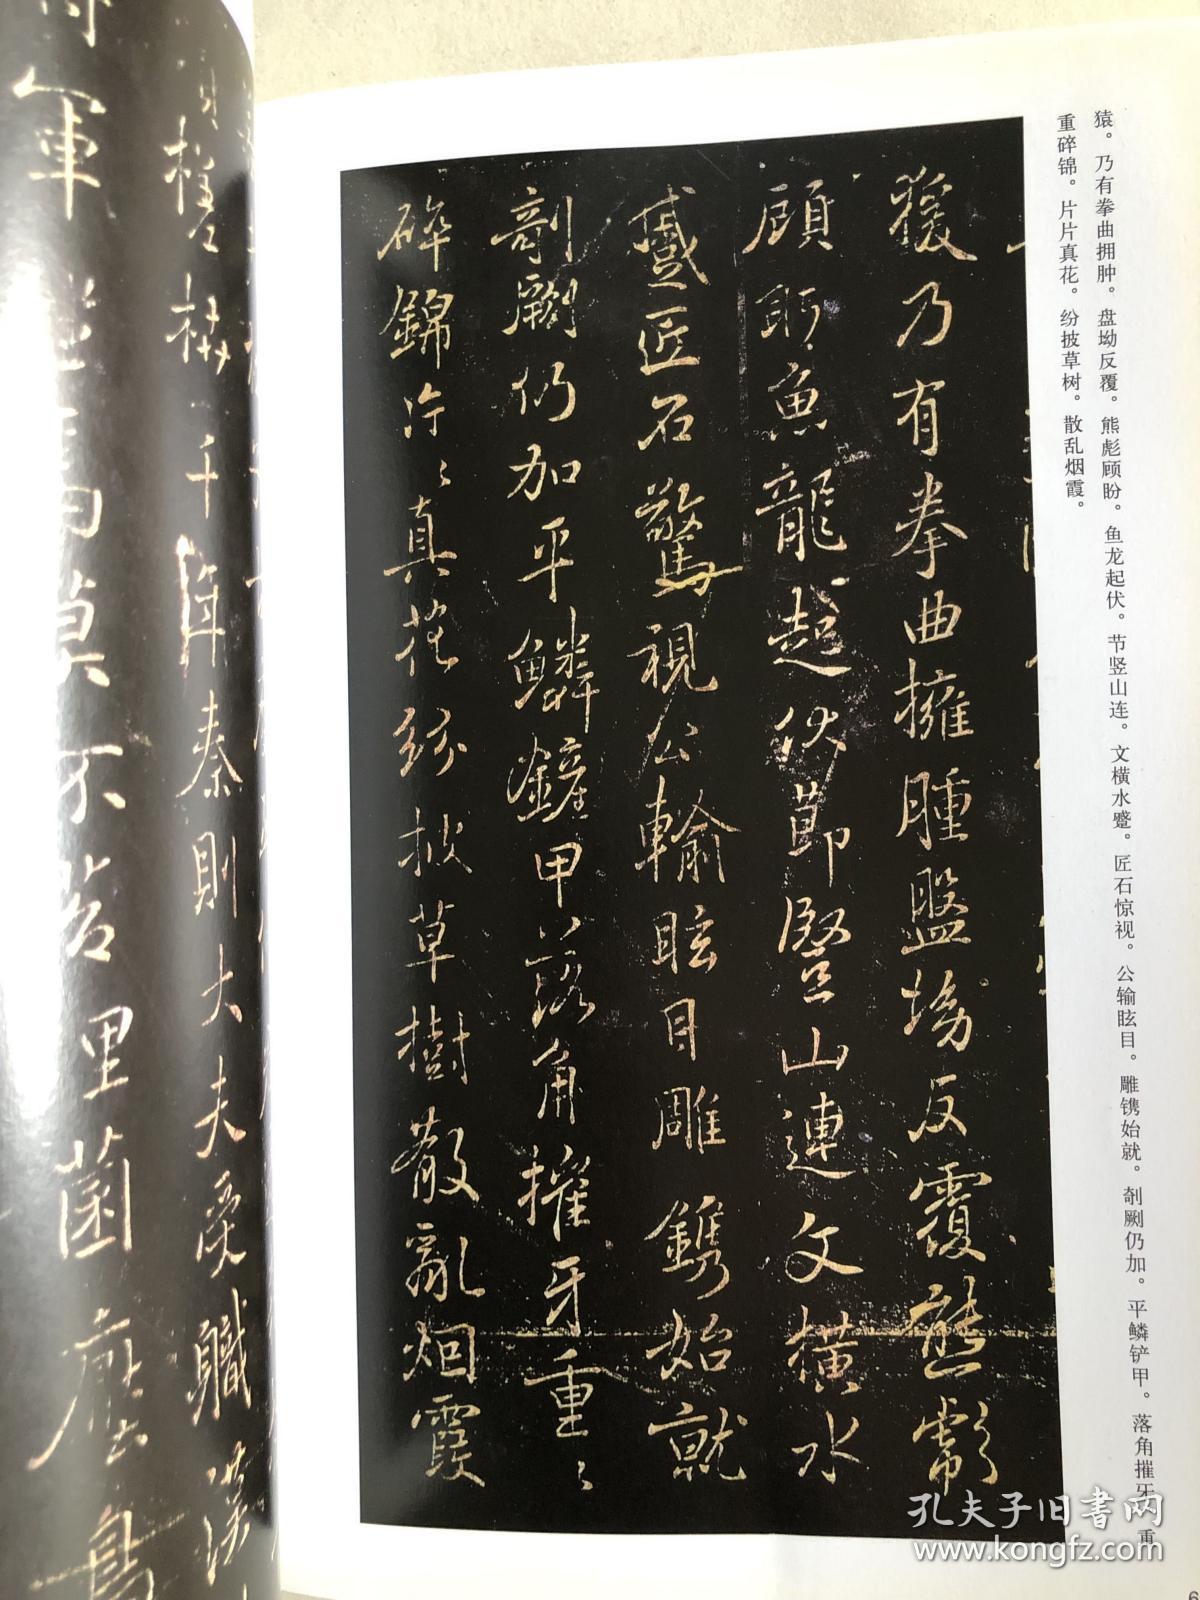 猿。乃有拳曲拥肿。盘坳反覆。熊彪顾盼。鱼龙起伏。节竖山连。文横水蹙。匠石惊视。公输眩目。雕镌始就。剞劂仍加。平鳞铲甲。落角摧牙。重
重碎锦。片片真花。纷披草树。散乱烟霞。
猨乃有拳曲擁腫盤坳反覆熊彪
顧盻魚龍起伏節竪山連文橫水
蹙匠石驚視公輸眩目雕鐫始就
剞劂仍加平鱗鏟甲落角摧牙重〻
碎錦片〻真花紛披草樹散亂烟霞
千年秦則大夫受職漢
軍 莫不苔埋菌
孔夫子旧书网
www.kongfz.com
6